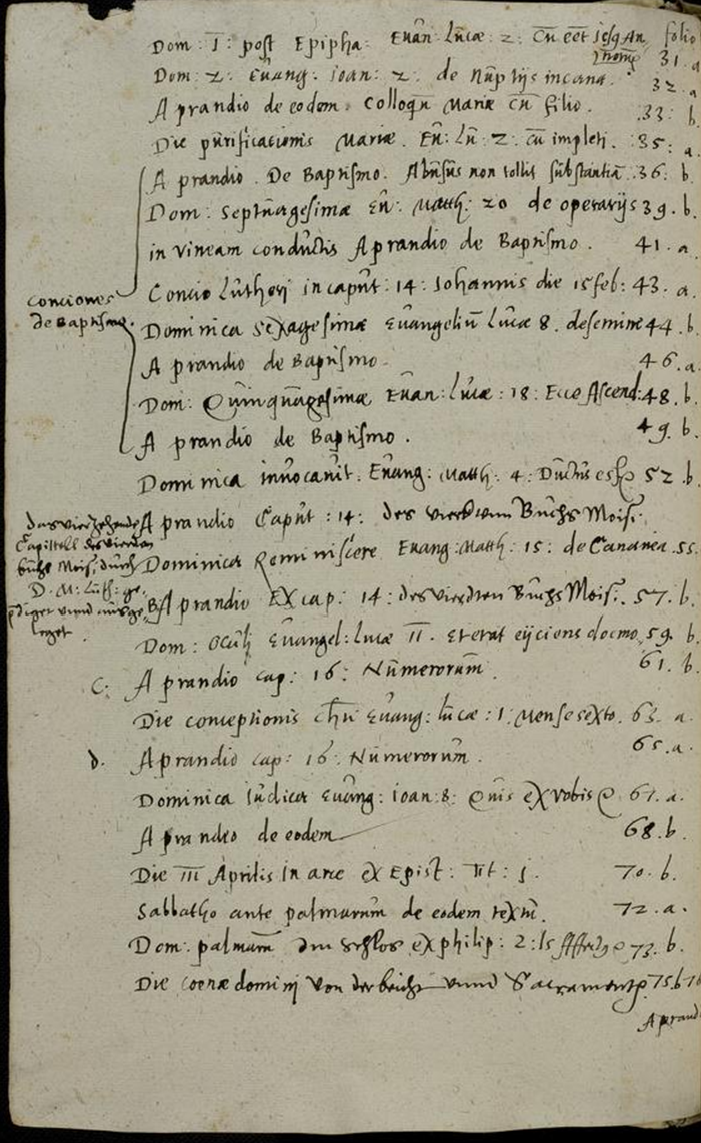 Dom: I: post Epipha: Euan: Lucæ: 2: Cu eēt iesꝯ An folio
norꝯ 31. a
Dom: 2: Euang: Ioan: 2. de Nuptijs in cana. 32. a
A prandio de eodem. Colloqū Mariæ cū filio. 33: b
Die purificationis Mariæ. Eū: Lū: 2: cū impleti. 35: a
A prandio. De Baptismo. Abusus non tollit substantiā. 36: b
Dom: Septuagesimæ Eū: Matth: 20 de operarijs 39. b.
in vineam conductis A prandio de Baptismo. 41. a
Concio Lutheri in caput: 14: Iohannis die 15 feb: 43. a.
conciones
de Baptismo.
Dominica Sexagesimæ Euangeliū Lucæ 8. de semine 44. b.
A prandio de Baptismo. 46. a.
Dom: Quinquagesimæ Euan: Lucæ: 18: Ecce Ascend: 48. b.
A prandio de Baptismo. 49. b.
Dominica inuocauit: Euang: Matth: 4: Ductus est 52. b.
A prandio Caput: 14: des vierdten Buchs Mosi.
das vierzehende
Capittell des vierden
buchs Mosi, durch
D. M: Luth: ge-
prediget vnnd ausge-
leget.
Dominica Reminiscere Euang: Matth: 15: de Cananea. 55.
B A prandio Ex cap: 14: des vierdten Buchs Mosi. 57. b.
Dom: oculj Euangel: Lucæ II. Et erat eijciens dæmo. 59. b
C. A prandio cap: 16: Numerorum. 61. b.
Die conceptionis Chri Euang: Lucæ: 1: Mense sexto. 63. a.
d. A prandio cap: 16: Numerorum. 65. a.
Dominica Iudica Euang: Ioan: 8: Quis ex vobis 67. a.
A prandeo de eodem 68. b.
Die III Aprilis in arce ex Epist: Tit: 1. 70. b.
Sabbatho ante palmarum de eodem textu. 72. a.
Dom: palmarū Im schlos ex philip: 2: 73. b.
Die coenæ dominj von der beicht vnnd Sacrament 75. b
A prand